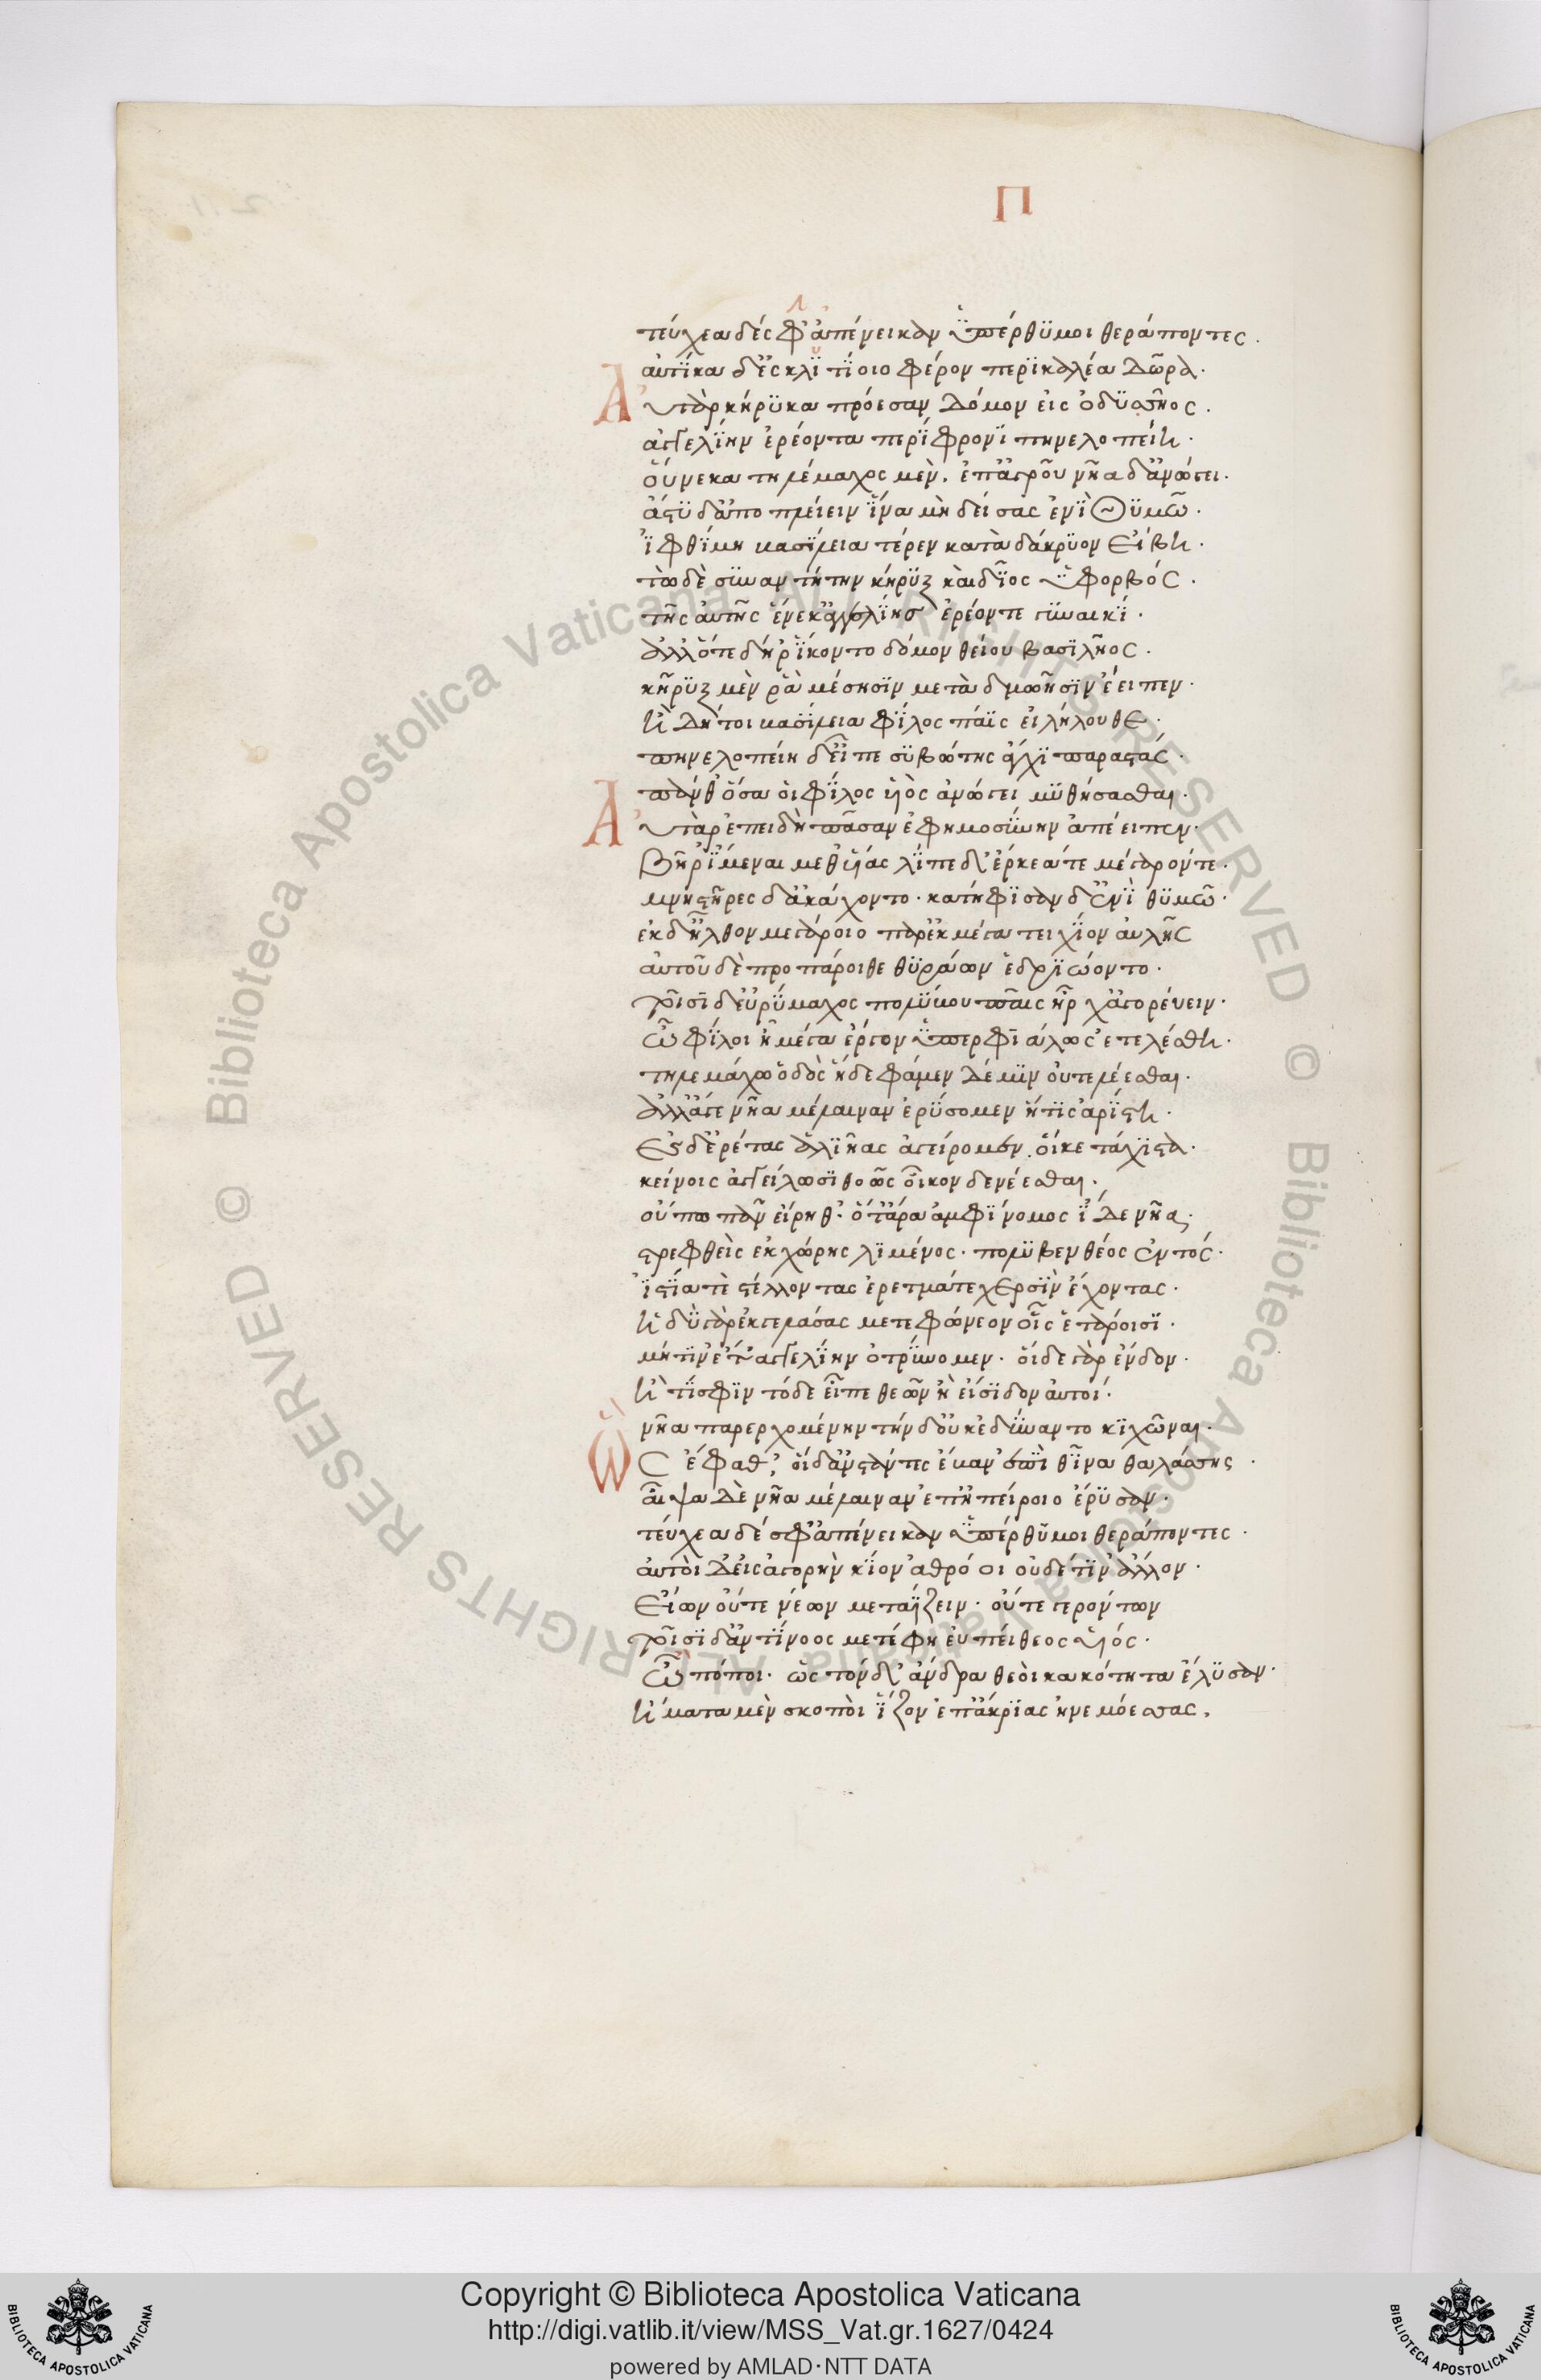 Π
τεύχεα δές φ' ἀπένεικαν ὑπέρθυμοι θεράποντες.
αὐτίκα δ' ἐς κλυτίοιο φέρον περικαλέα δῶρα.
Αὐτὰρ κήρυκα πρόεσαν δόμον εἰς ὀδυσῆος.
ἀγγελίην ἐρέοντα περίφρονι πηνελοπείη.
οὕνεκα τηλέμαχος μὲν. ἐπ' ἀγροῦ νῆα δ' ἀνώγει.
ἄστυ δ' ἀποπλείειν ἵνα μὴ δείσας ἐνὶ θυμῶ.
ἰφθίμη βασίλεια τέρεν κατὰ δάκρυον εἴβη.
τὼ δὲ συναντήτην κήρυξ καὶ δῖος ὑφορβός.
τῆς αὐτῆς ἕνεκ' ἀγγελίης ἐρέοντε γυναικί.
ἀλλ' ὅτε δή ῥ' ἵκοντο δόμον θείου βασιλῆος.
κῆρυξ μὲν ῥα μέσησιν μετὰ δμωῆσιν ἔειπεν.
ἤδη τοι βασίλεια φίλος πάϊς εἰλήλουθε.
πηνελοπείη δ' εἶπε συβώτης ἄγχι παραστάς.
πάνθ' ὅσα οἱ φίλος υἱὸς ἀνώγει μυθήσασθαι.
Αὐτὰρ ἐπειδὴ πᾶσαν ἐφημοσύνην ἀπέειπεν.
βῆ ῥ' ἴμεναι μεθ' ὕας λίπε δ' ἕρκεά τε μέγαρόν τε.
μνηστῆρες δ' ἀκάχοντο. κατήφισαν δ' ἐνὶ θυμῶ.
ἐκ δ' ἦλθον μεγάροιο παρ' ἐκ μέγα τειχίον αὐλῆς
αὐτοῦ δὲ προπάροιθε θυράων ἑδριόωντο.
τοῖσι δ' εὐρύμαχος πολύβου παῖς ἦρχ' ἀγορεύειν.
Ὦ φίλοι ἦ μέγα ἔργον ὑπερφιάλως ἐτελέσθη.
τηλεμάχω ὁδὸς ἥδε φάμεν δέ μιν οὐ τελέεσθαι.
ἀλλ' ἄγε νῆα μέλαιναν ἐρύσομεν ἥτις ἀρίστη.
ἐς δ' ἐρέτας ἁλιῆας ἀγείρομεν. οἵ κε τάχιστα.
κείνοις ἀγγείλωσι θοῶς οἶκον δε νέεσθαι.
οὔπω πᾶν εἴρηθ'. ὅτ' ἄρα ἀμφίνομος ἴδε νῆα.
στρεφθεὶς ἐκ χώρης λιμένος. πολυβενθέος ἐντός.
ἱστία τὲ στέλλοντας ἐρετμά τε χερσὶν ἔχοντας.
ἡδὺ γὰρ ἐκγελάσας μετεφώνεον οἷς ἑτάροισι.
μή τιν' ἔτ' ἀγγελίην ὀτρύνομεν. οἵδε γὰρ ἔνδον.
ἤ τί σφιν τόδε εἶπε θεῶν ἢ εἴσιδον αὐτοί.
νῆα παρερχομένην τήνδ' οὐκ ἐδύναντο κιχῶναι.
Ὣς ἔφαθ', οἱ δ' ἀνστάντες ἔβαν ἐπὶ θῖνα θαλάσσης.
αἶψα δὲ νῆα μέλαιναν ἐπ' ἠπείροιο ἔρυσαν.
τεύχεα δέ σφ' ἀπένεικαν ὑπέρθυμοι θεράποντες.
αὐτοὶ δ' εἰς ἀγορὴν κίον ἀθρόοι οὐδέ τιν' ἄλλον.
εἴων οὔτε νέων μεταΐζειν. οὔτε γερόντων
τοῖσι δ' ἀντίνοος μετέφη εὐπείθεος υἱός.
Ὦ πόποι. ὡς τόνδ' ἄνδρα θεοὶ κακότητα ἔλυσαν.
ἤματα μὲν σκοποὶ ἵζον ἐπ' ἄκριας ἠνεμοέσσας.
Copyright © Biblioteca Apostolica Vaticana
http://digi.vatlib.it/view/MSS_Vat.gr.1627/0424
powered by AMLAD·NTT DATA
BIBLIOTECA APOSTOLICA VATICANA
BIBLIOTECA APOSTOLICA VATICANA
© Biblioteca Apostolica Vaticana ALL RIGHTS RESERVED
© Biblioteca Apostolica Vaticana ALL RIGHTS RESERVED